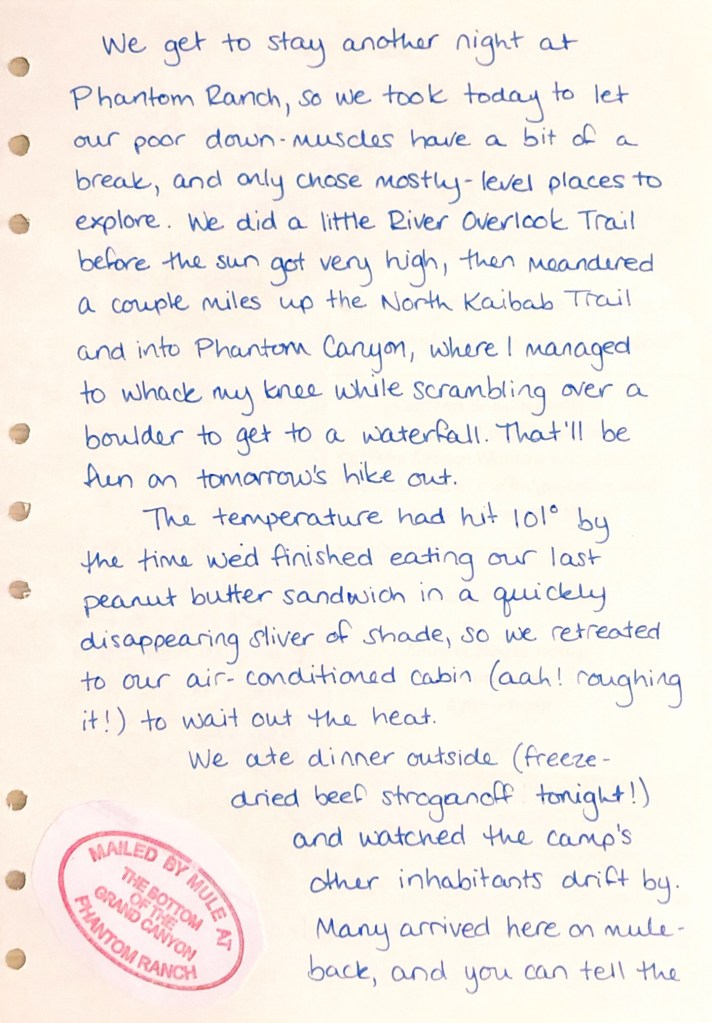 We get to stay another night at
Phantom Ranch, so we took today to let
our poor down-muscles have a bit of a
break, and only chose mostly-level places to
explore. We did a little River Overlook Trail
before the sun got very high, then meandered
a couple miles up the North Kaibab Trail
and into Phantom Canyon, where I managed
to whack my knee while scrambling over a
boulder to get to a waterfall. That'll be
fun on tomorrow's hike out.
The temperature had hit 101° by
the time we'd finished eating our last
peanut butter sandwich in a quickly
disappearing sliver of shade, so we retreated
to our air-conditioned cabin (aah! roughing
it!) to wait out the heat.
We ate dinner outside (freeze-
dried beef stroganoff tonight!)
and watched the camp's
other inhabitants drift by.
Many arrived here on mule-
back, and you can tell the
MAILED BY MULE AT
THE BOTTOM
OF THE
GRAND CANYON
PHANTOM RANCH